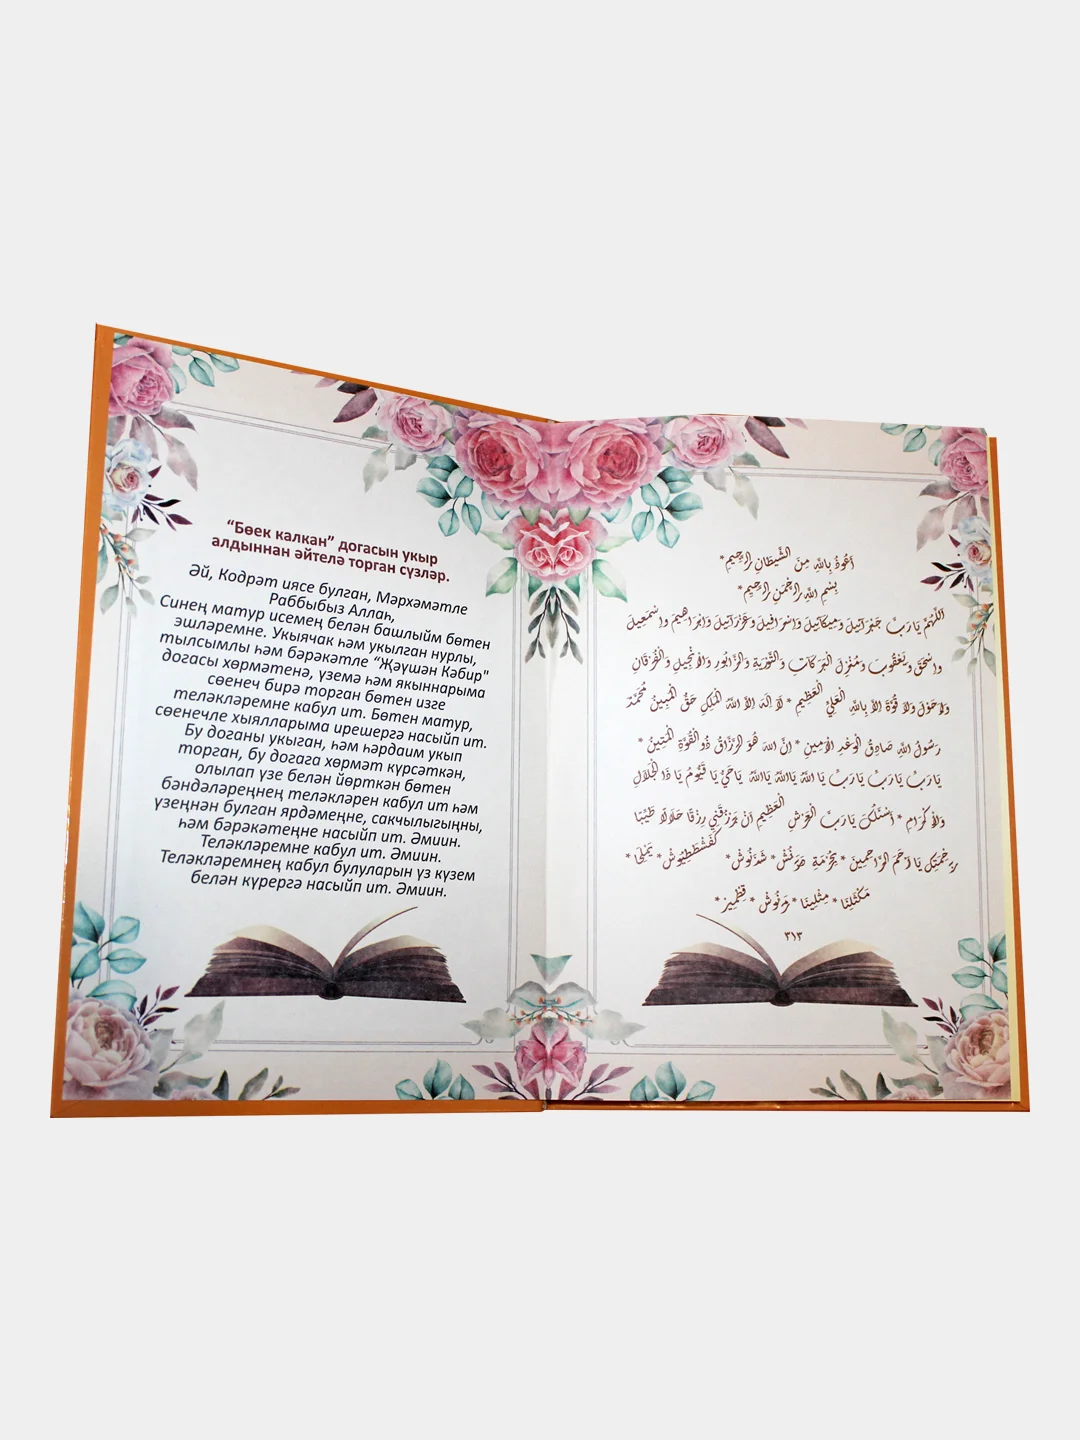 “Бөек калкан” догасын укыр
алдыннан әйтелә торган сүзләр.
Әй, Кодрәт иясе булган, Мәрхәмәтле
Раббыбыз Аллаһ,
Синең матур исемең белән башлыйм бөтен
эшләремне. Укыячак һәм укылган нурлы,
тылсымлы һәм бәрәкәтле “Җәүшән Кәбир"
догасы хөрмәтенә, үземә һәм якыннарыма
сөенеч бирә торган бөтен изге
теләкләремне кабул ит. Бөтен матур,
сөенечле хыялларыма ирешергә насыйп ит.
Бу доганы укыган, һәм һәрдаим укып
торган, бу догага хөрмәт күрсәткән,
олылап үзе белән йөрткән бөтен
бәндәләреңнең теләкләрен кабул ит һәм
үзеңнән булган ярдәмеңне, сакчылыгыңны,
һәм бәрәкәтеңне насыйп ит. Әмиин.
Теләкләремне кабул ит. Әмиин.
Теләкләремнең кабул булуларын үз күзем
белән күрергә насыйп ит. Әмиин.
أَعُوذُ بِاللهِ مِنَ الشَّيْطَانِ الرَّجِيمِ*
بِسْمِ اللهِ الرَّحْمَنِ الرَّحِيمِ*
اَللّٰهُمَّ يَا رَبَّ جَبْرَائِيلَ وَمِيكَائِيلَ وَاِسْرَافِيلَ وَعَزْرَائِيلَ وَاِبْرَاهِيمَ وَاِسْمَعِيلَ
وَاِسْحَقَ وَيَعْقُوبَ وَمُنْزِلَ الْبَرَكَاتِ وَالتَّوْرَيةِ وَالزَّابُورِ وَالْاِنْجِيلِ وَالْفُرْقَانِ
وَلَا حَوْلَ وَلَا قُوَّةَ اِلَّا بِاللهِ الْعَلِيِّ الْعَظِيمِ * لَا اِلَهَ اِلَّا اللهُ الْمَلِكُ حَقُّ الْمُبِينُ مُحَمَّدٌ
رَسُولُ اللهِ صَادِقُ الْوَعْدِ الْاَمِينِ * اِنَّ اللهَ هُوَ الرَّزَّاقُ ذُو الْقُوَّةِ الْمَتِينُ *
يَا رَبِّ يَا رَبِّ يَا رَبِّ يَا اَللهُ يَا اَللهُ يَا اَللهُ يَا حَيُّ يَا قَيُّومُ يَا ذَا الْجَلَالِ
وَالْاِكْرَامِ * اَسْئَلُكَ يَا رَبَّ الْعَرْشِ الْعَظِيمِ اَنْ تَرْزُقَنِي رِزْقًا حَلَالًا طَيِّبًا
بِرَحْمَتِكَ يَا اَرْحَمَ الرَّاحِمِينَ * بِحُرْمَةِ مَرْنُشْ * شَدَنُوشْ * كَفَشْطَطَيُوشْ * يَمْلِيخَا *
مَكْثَلِنَا * مِثْلِينَا * دَبَرْنُوشْ * قِطْمِيرْ *
٣١٣